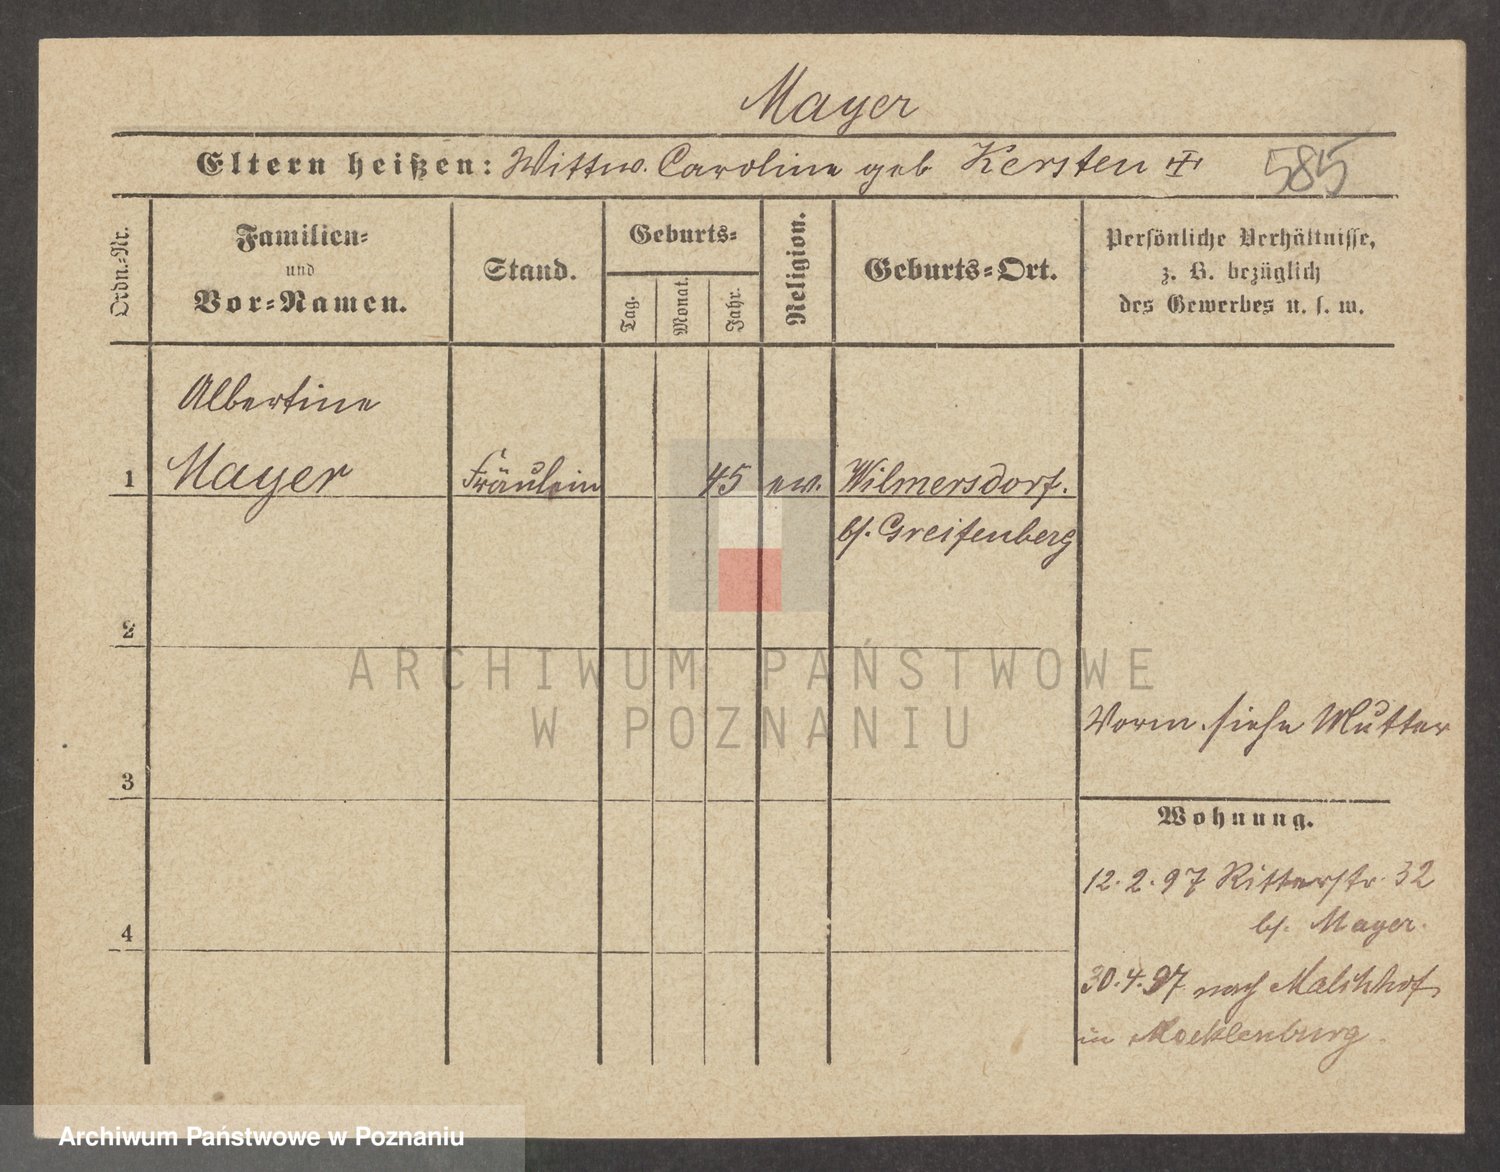 Mayer
Eltern heißen: Wittw. Caroline geb Kersten
585
Ordn.-Nr.
Familien-
und
Vor-Namen.
Stand.
Geburts-
Tag.
Monat.
Jahr.
Religion.
Geburts-Ort.
Persönliche Verhältnisse,
z. B. bezüglich
des Gewerbes u. s. w.
Albertine
1 Mayer Fräulein 45 ev. Wilmersdorf.
b/. Greifenberg
2
ARCHIWUM PAŃSTWOWE
W POZNANIU
Vorm. siehe Mutter
3
Wohnung.
12.2.97 Ritterstr. 32
b/. Mayer.
4
30.4.97 nach
in Mecklenburg.
Archiwum Państwowe w Poznaniu